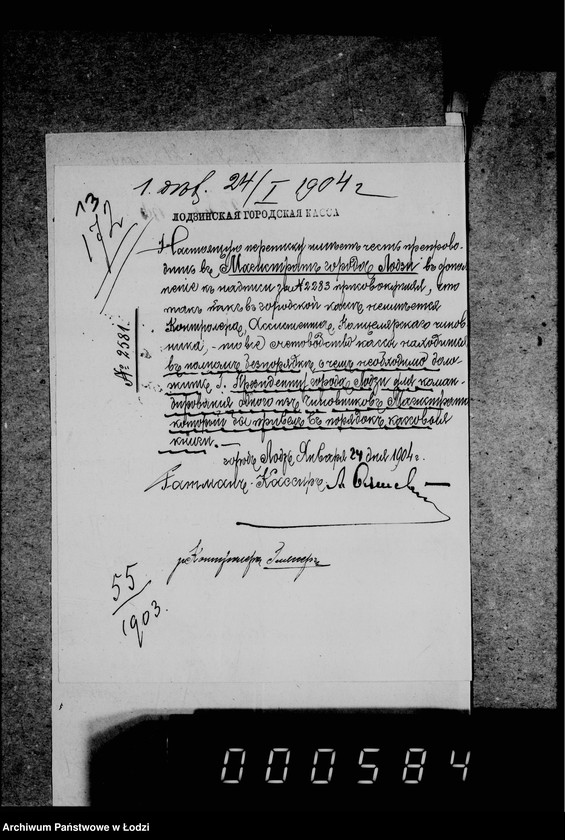 24/I 1904 г
13
172
ЛОДЗИНСКАЯ ГОРОДСКАЯ КАССА
Настоящую переписку имѣетъ честь препрово-
дить въ Магистратъ города Лодзи въ допол
неніе къ надписи за № 2283 присовокупляя, что
такъ какъ въ городской кассѣ неимѣется
Контролера, Ассистента, Канцелярскаго чинов
ника, - то все счетоводство кассы находится
въ полномъ безпорядкѣ, о чемъ необходимо доло-
жить Г. Президенту города Лодзи для коман-
дированія одного изъ Чиновниковъ Магистрата
который бы привелъ въ порядокъ кассовыя
книги. —
№ 2581.
городъ Лодзь, Января 24 дня 1904 г.
Кассиръ
Контролеръ
55
1903.
000584
Archiwum Państwowe w Łodzi